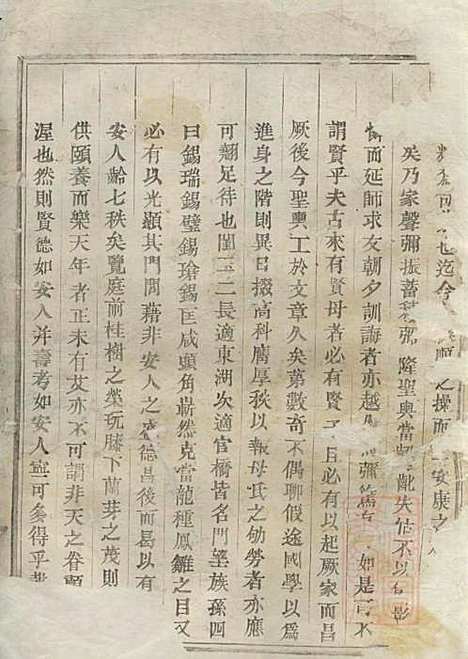 也迄今之操而安康之
矣乃家聲彌振蓄積彌隆聖輿當齠齔失怙不以
而延師求友朝夕訓誨者亦越彌篤如是豈不
謂賢乎夫古來有賢母者必有賢子且必有以起厥家而昌
厥後今聖輿工於文章久矣第數奇不偶聊假途國學以為
進身之階則異日掇高科膺厚秩以報母氏之劬勞者亦應
可翹足待也閨二長適東湖次適官橋皆名門望族孫四
曰錫瑞錫璧錫瑜錫匡咸頭角嶄然克當龍種鳳雛之目又
必有以光顯其門閭藉非安人之盛德昌後而曷以有
安人齡七秩矣覽庭前桂樹之榮玩膝下蘭芽之茂則
供頤養而樂天年者正未有艾亦不可謂非天之眷顧
渥也然則賢德如安人并壽考如安人寧可多得乎哉